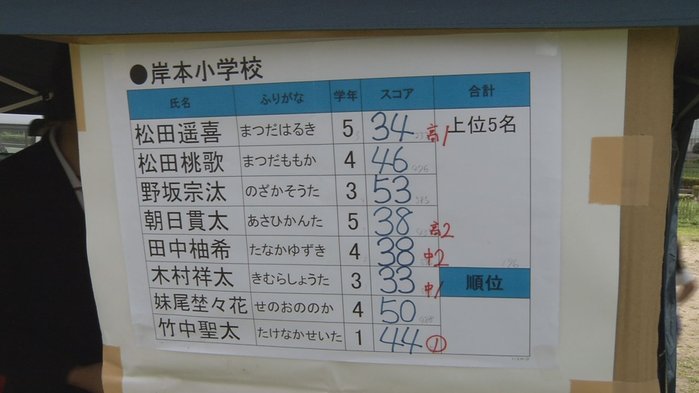 ●岸本小学校
氏名 ふりがな 学年 スコア 合計
松田遥喜 まつだはるき 5 34 高1 上位5名
松田桃歌 まつだももか 4 46
野坂宗汰 のざかそうた 3 53
朝日貫太 あさひかんた 5 38 高2
田中柚希 たなかゆずき 4 38 中2
木村祥太 きむらしょうた 3 33 中1 順位
妹尾埜々花 せのおののか 4 50
竹中聖太 たけなかせいた 1 44 ①